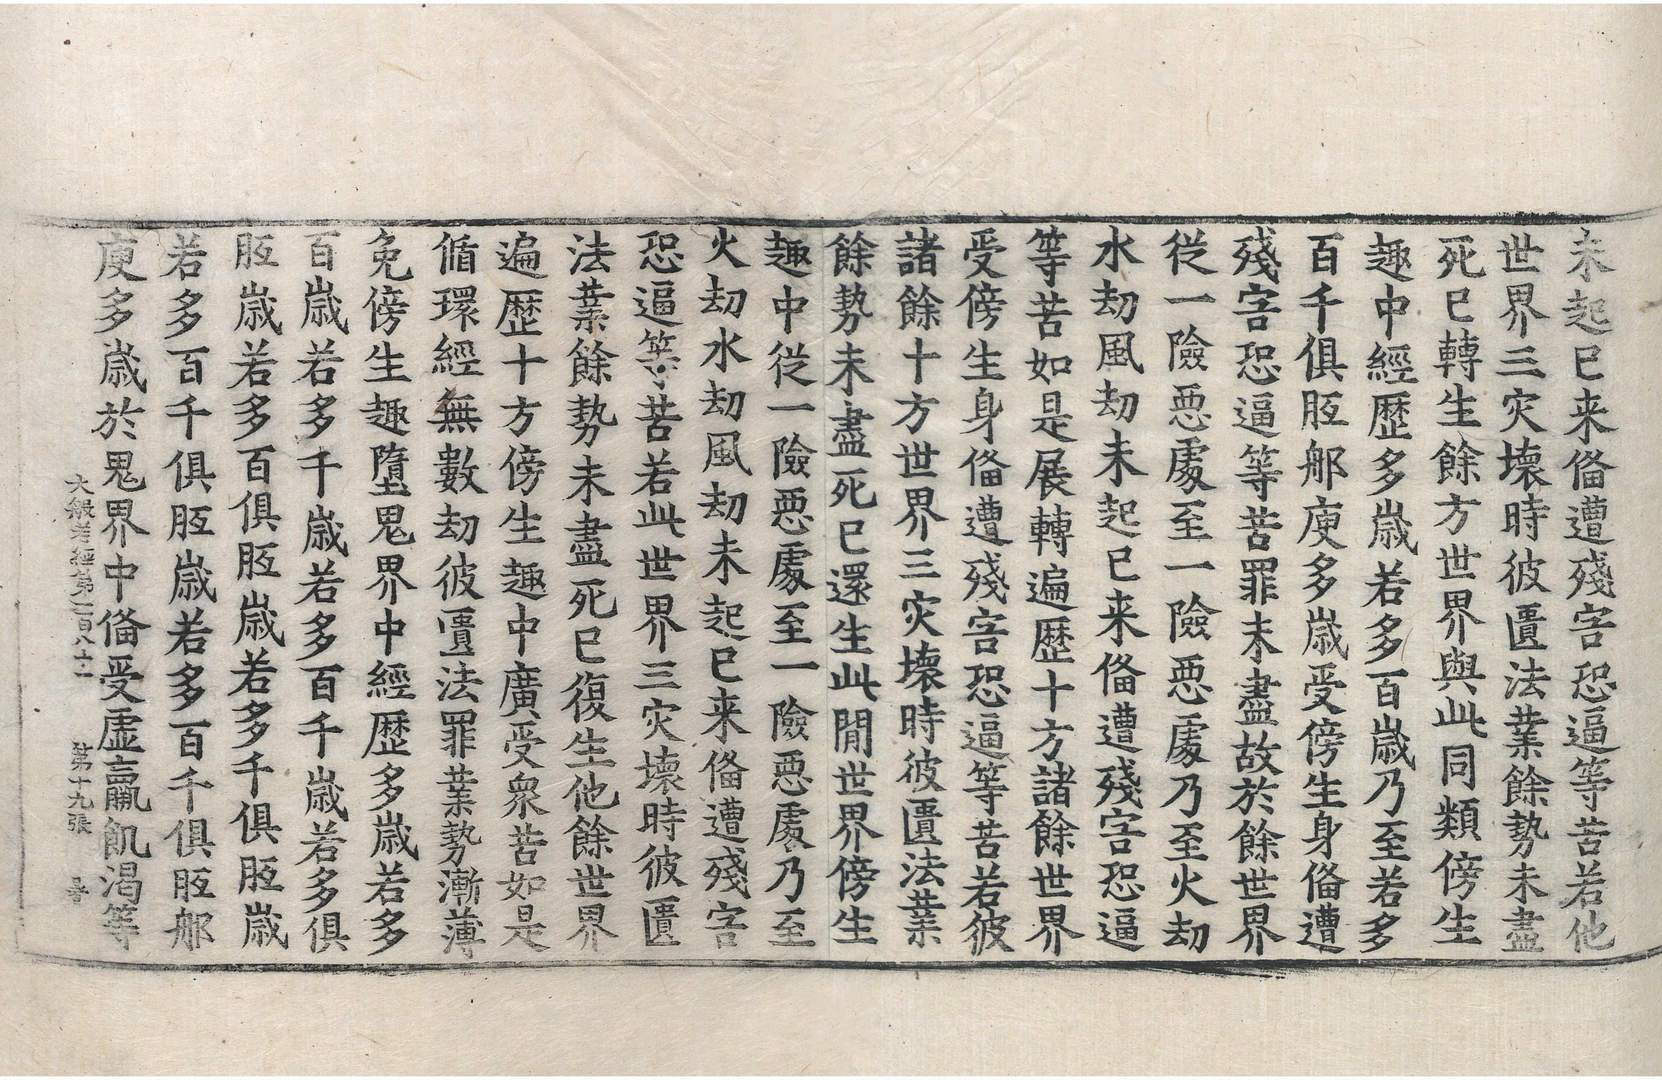 未起已来俻遭殘害恐逼等苦若他
世界三灾壞時彼匱法業餘勢未盡
死已轉生餘方世界與此同類傍生
趣中經歷多歲若多百歲乃至若多
百千俱胝那庾多歲受傍生身俻遭
殘害恐逼等苦罪未盡故於餘世界
從一險惡處至一險惡處乃至火劫
水劫風劫未起已来俻遭殘害恐逼
等苦如是展轉遍歷十方諸餘世界
受傍生身俻遭殘害恐逼等苦若彼
諸餘十方世界三灾壞時彼匱法業
餘勢未盡死已還生此閒世界傍生
趣中從一險惡處至一險惡處乃至
火劫水劫風劫未起已来俻遭殘害
恐逼等苦若此世界三灾壞時彼匱
法業餘勢未盡死已復生他餘世界
遍歷十方傍生趣中廣受衆苦如是
循環經無數劫彼匱法罪業勢漸薄
免傍生趣墮鬼界中經歷多歲若多
百歲若多千歲若多百千歲若多俱
胝歲若多百俱胝歲若多千俱胝歲
若多百千俱胝歲若多百千俱胝那
庾多歲於鬼界中俻受虛羸飢渴等
大般若經第一百八十一 第十九張